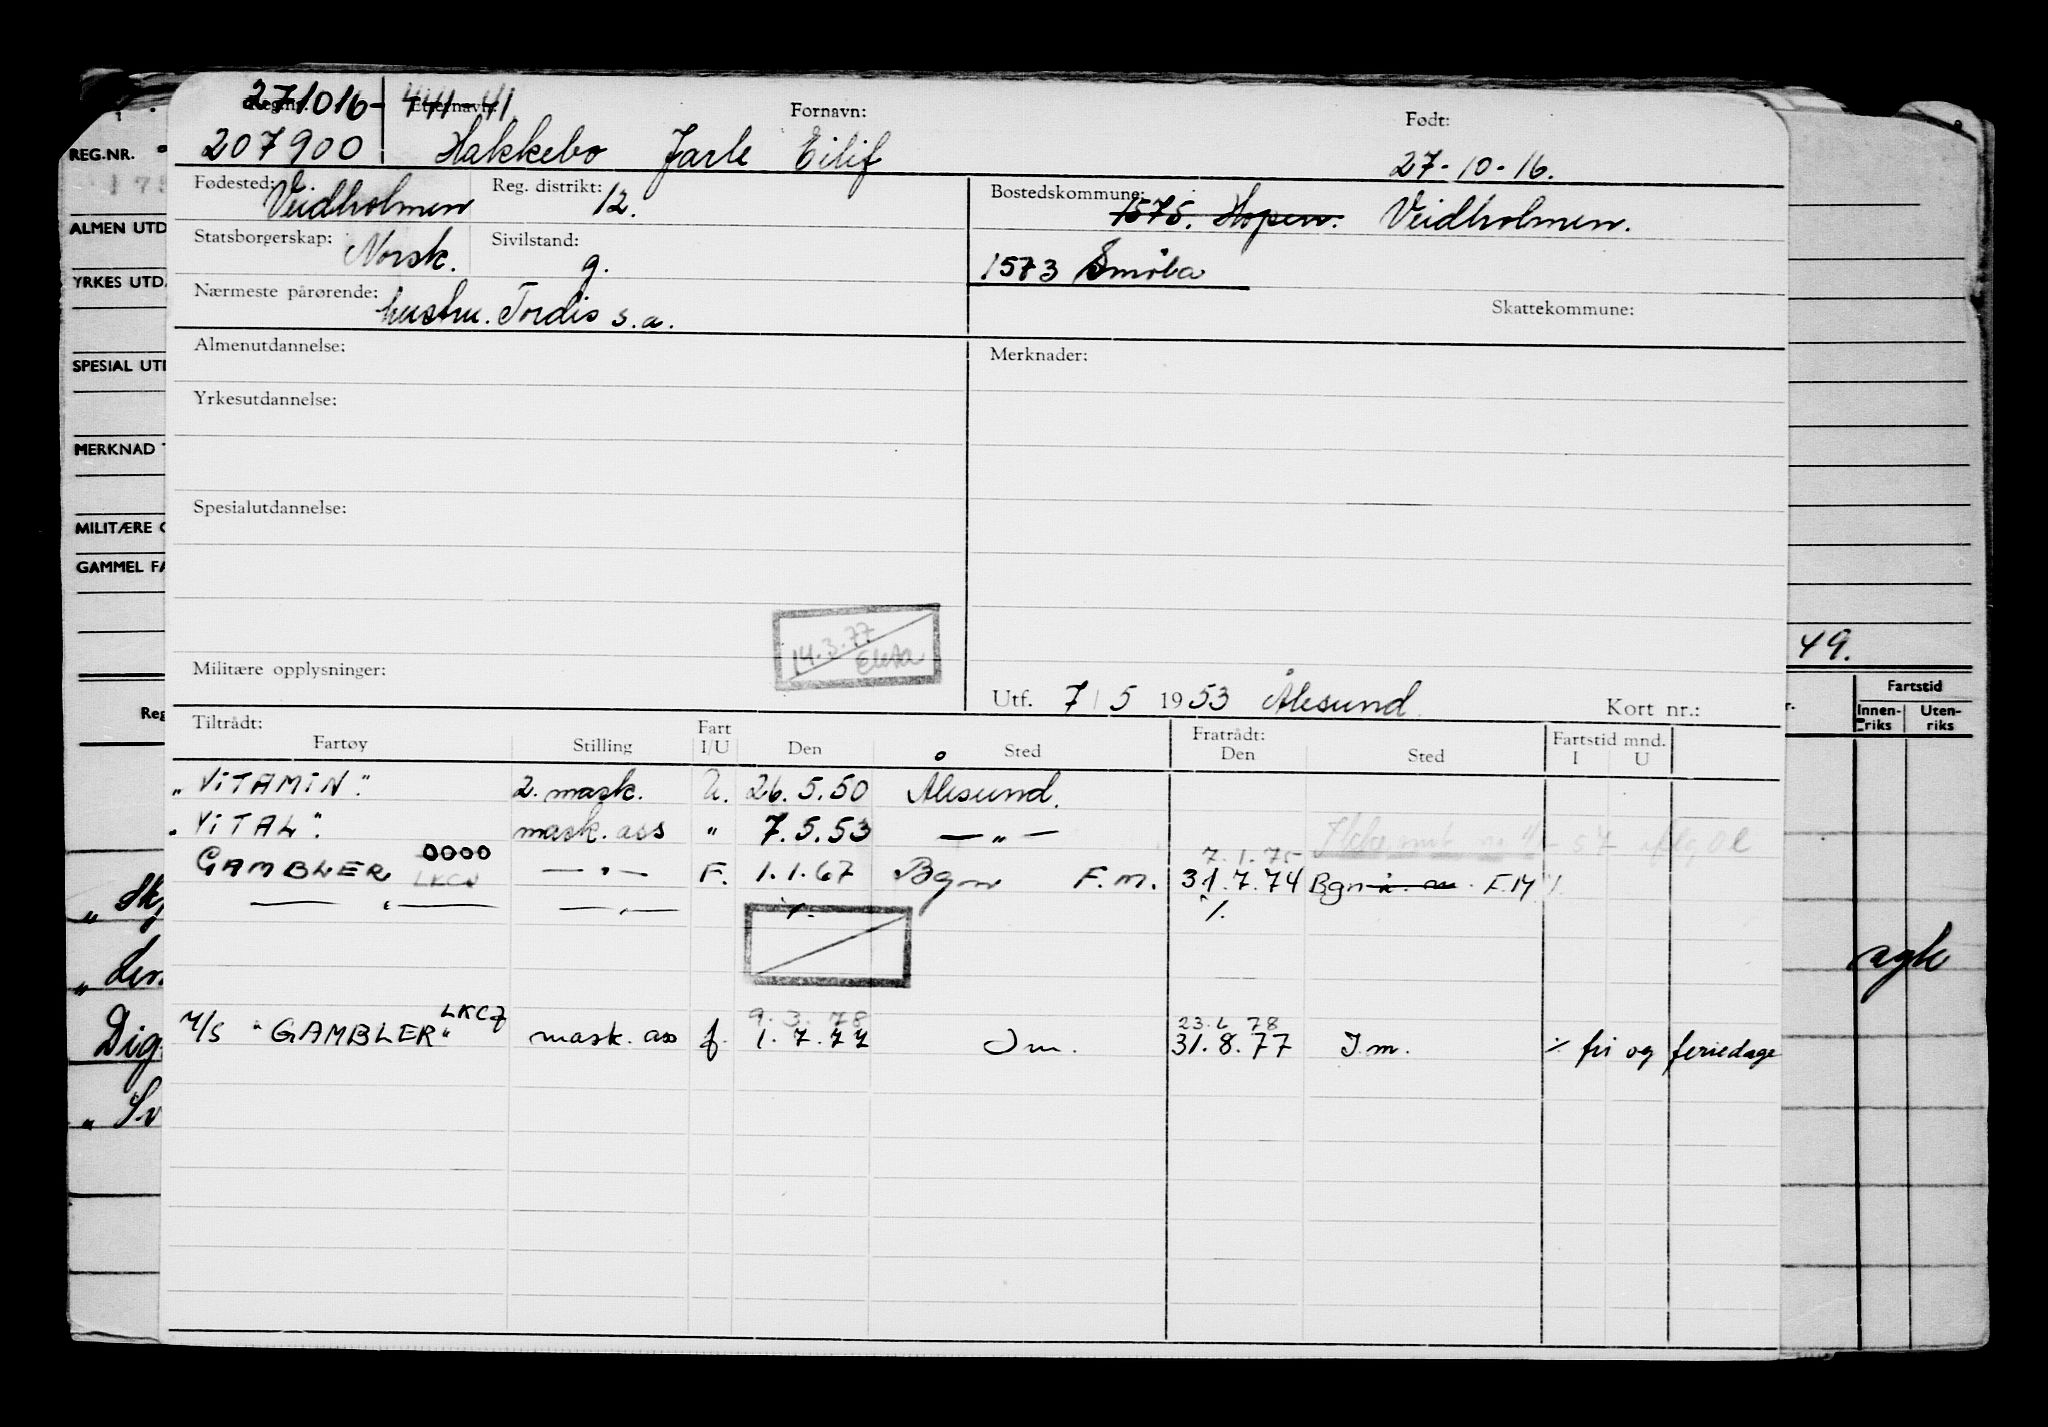 271016- 441-41
Reg.nr. Etternavn: Fornavn: Født:
207900 Hakkebo Jarle Eilif 27-10-16.
REG.NR.
Fødested: Veidholmen Reg. distrikt: 12. Bostedskommune: 1575. Hopen. Veidholmen.
ALMEN UTD
Statsborgerskap: Norsk. Sivilstand: g. 1573 Smöla
YRKES UTD
Nærmeste pårørende: hustru. Tordis s.a. Skattekommune:
Almenutdannelse: Merknader:
SPESIAL UTD
Yrkesutdannelse:
MERKNAD
Spesialutdannelse:
MILITÆRE
GAMMEL FA
14.3.77
49.
Militære opplysninger:
Utf. 7/5 1953 Ålesund Kort nr.:
Fartstid
Innen-riks Uten-riks
Reg
Tiltrådt: Fart Fratrådt: Fartstid mnd.
Fartøy Stilling I/U Den Sted Den Sted I U
"VITAMIN". 2. mask. U. 26.5.50 Ålesund.
"VITAL". mask. ass " 7.5.53 — " —
OOOO 7.1.75
GAMBLER LKCQ — " — F. 1.1.67 Bgn F.m. 31.7.74 Bgn i. m. F.M %.
— " — — " — %. %.
agk
LKCQ 9.3.78 23.6.78
M/S "GAMBLER" mask. ass f. 1.7.77 Im. 31.8.77 I.m. % fri og feriedage
Dig
" Sv